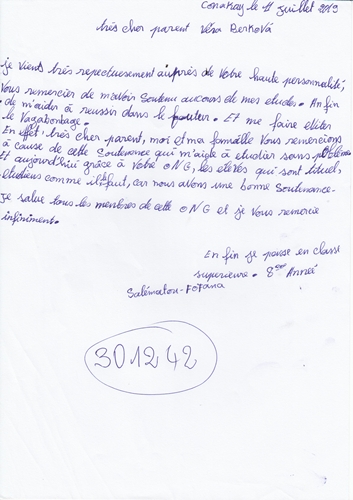 Conakry le 11 juillet 2019
très cher parent Věra Berková
je vients très repectueusement auprès de votre haute personnalité,
Vous remercier de m'avoir Soutenu au cours de mes etudes. An fin
de m'aider à reussir dans le fouter. Et me faire eliter
le Vagabontage.
En effet, très cher parent, moi et ma famille Vous remercions
à cause de cette Soutenance qui m'aide à etudier sans poblème
Et aujourd'hui grâce à Votre ONG, les elevès qui sont
etudiens comme il faut, car nous avons une bonne Soutenance.
Je salue tous les membres de cette ONG et je Vous remercie
infiniment.
En fin je passe en classe
superieure. 8eme Anneé
Salématou-FOFana
301242